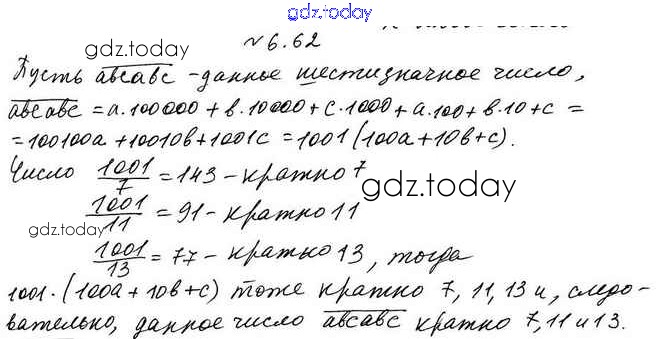 gdz.today
№ 6.62
gdz.today
Пусть abcabc - данное шестизначное число,
abcabc = a·100000 + b·10000 + c·1000 + a·100 + b·10 + c =
= 100100a + 10010b + 1001c = 1001 (100a + 10b + c).
Число 1001/7 = 143 - кратно 7
gdz.today
1001/11 = 91 - кратно 11
gdz.today
1001/13 = 77 - кратно 13, тогда
1001·(100a + 10b + c) тоже кратно 7, 11, 13 и, следо-
вательно, данное число abcabc кратно 7, 11 и 13.